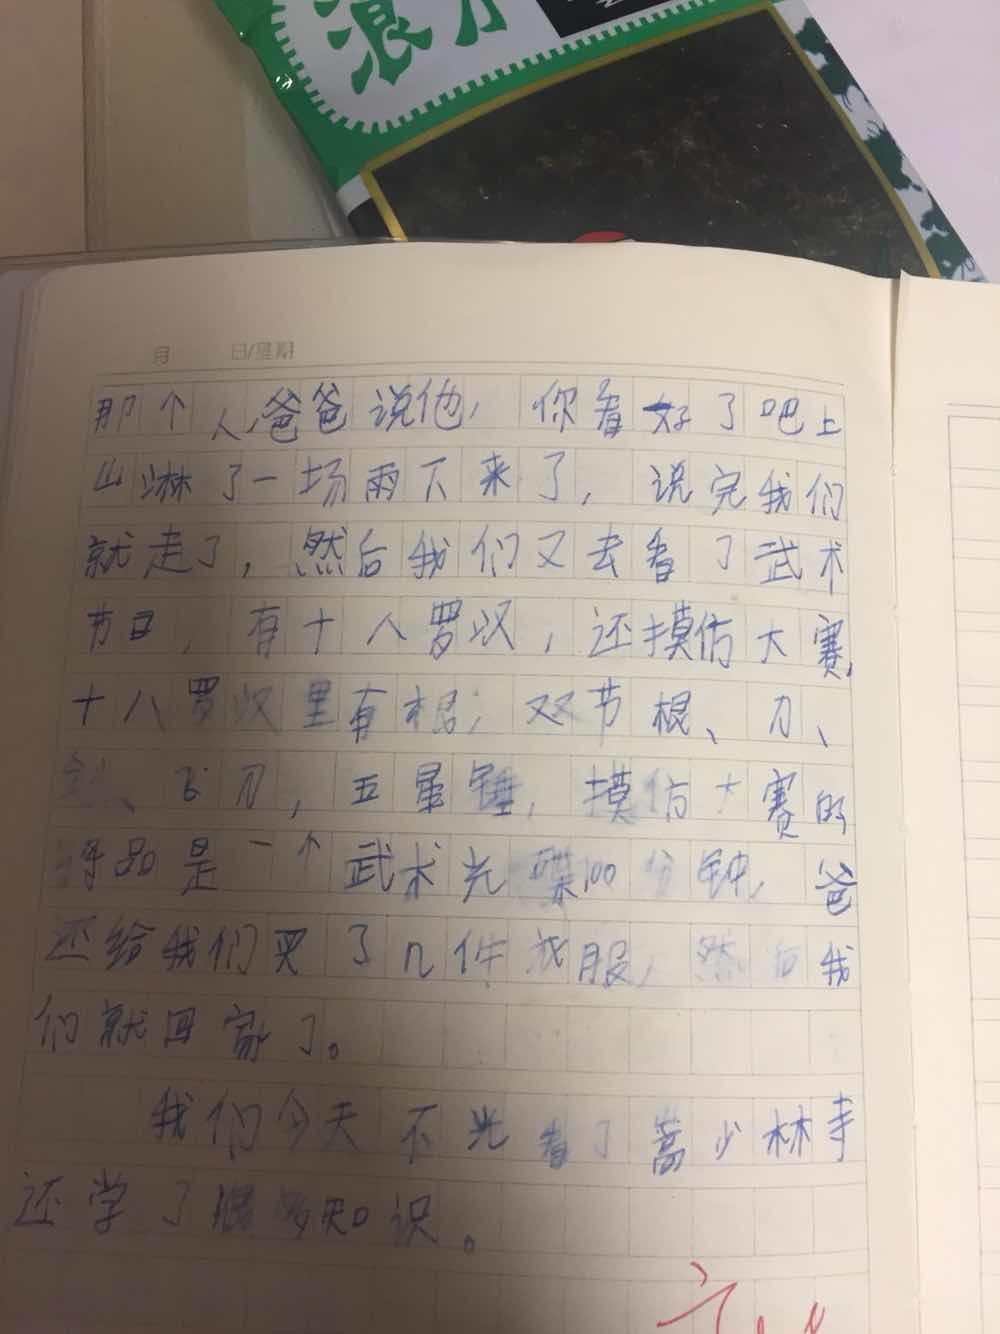 浪
月 日/星期
那个人,爸爸说他,你看好了吧上
山淋了一场雨下来了,说完我们
就走了,然后我们又去看了武术
节目,有十八罗汉,还摸仿大赛,
十八罗汉里有棍,双节棍、刀、
剑、飞刀,五星锤,摸仿大赛的
品是一个武术光碟100分钟,爸
还给我们买了几件衣服,然后我
们就回家了。
我们今天不光看了嵩少林寺
还学了很多知识。